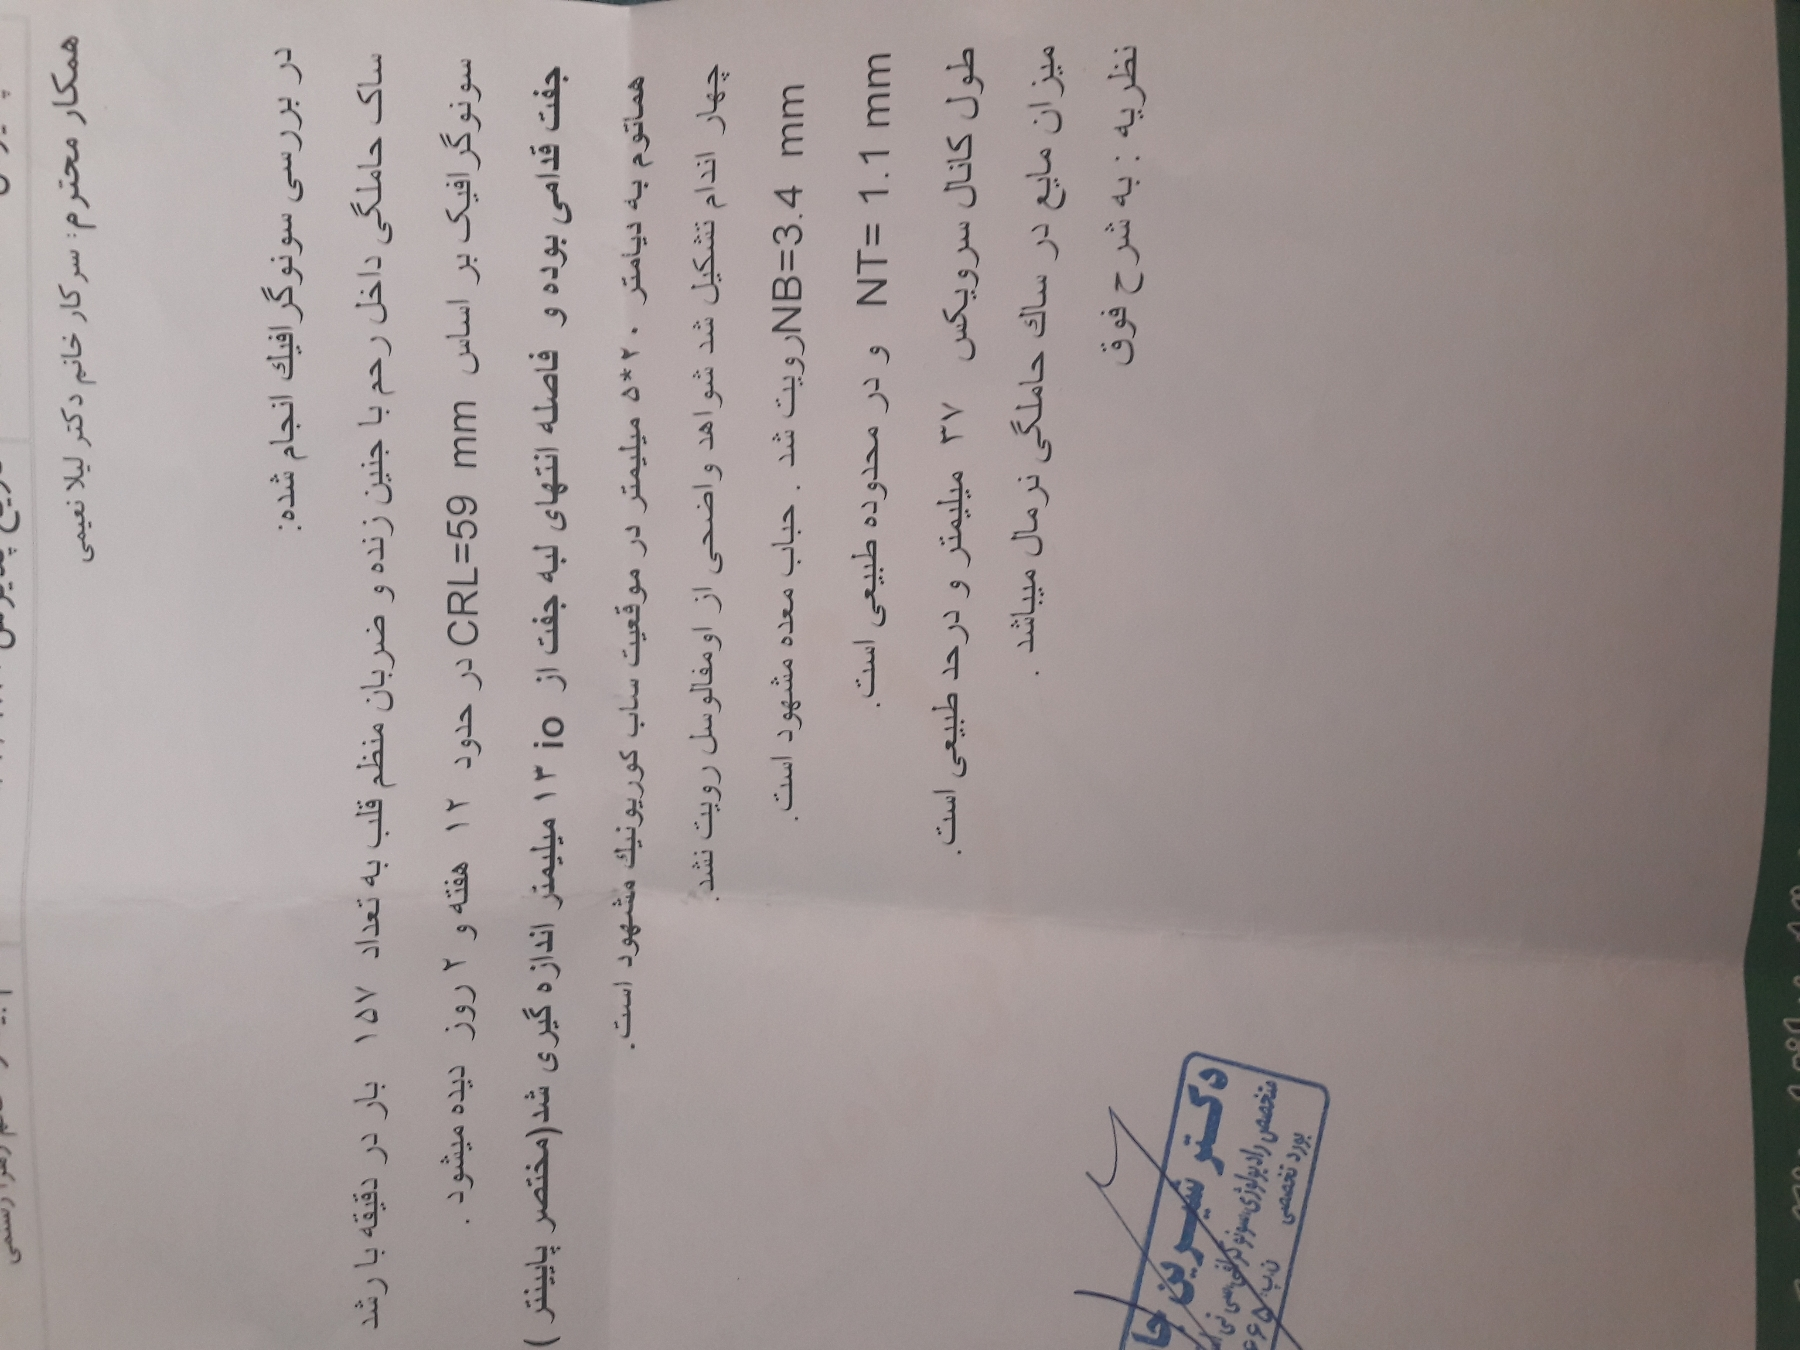 همکار محترم: سرکار خانم دکتر لیلا نعیمی
در بررسی سونوگرافیك انجام شده:
ساک حاملگی داخل رحم با جنین زنده و ضربان منظم قلب به تعداد ۱۵۷ بار در دقیقه با رشد
سونوگرافیک بر اساس CRL=59 mm در حدود ۱۲ هفته و ۲ روز دیده میشود .
جفت قدامی بوده و فاصله انتهای لبه جفت از io ۱۳ میلیمتر اندازه گیری شد(مختصر پایینتر )
هماتوم به دیامتر ۲۰*۵ میلیمتر در موقعیت ساب کوریونیك مشهود است.
چهار اندام تشکیل شد شواهد واضحی از اومفالوسل رویت نشد.
NB=3.4 mm رویت شد . حباب معده مشهود است.
NT= 1.1 mm و در محدوده طبیعی است.
طول کانال سرویکس ۳۷ میلیمتر و درحد طبیعی است.
میزان مایع در ساك حاملگی نرمال میباشد .
نظریه : به شرح فوق
دکتر شیرین
متخصص رادیولوژی،سونوگرافی،سی تی
بورد تخصصی